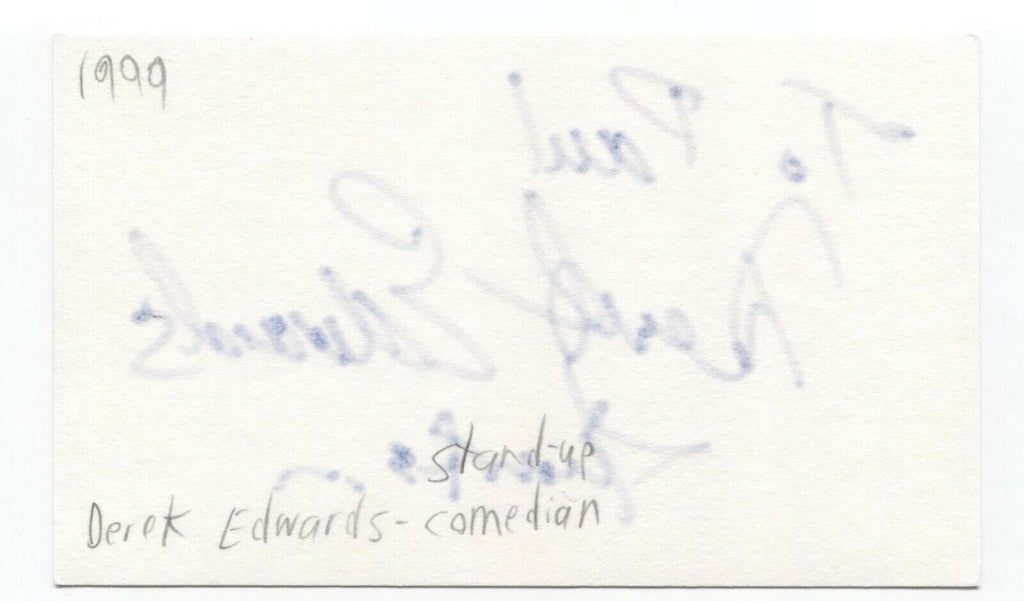 1999
To Paul
Derek Edwards
Thanks
stand-up
Derek Edwards - comedian